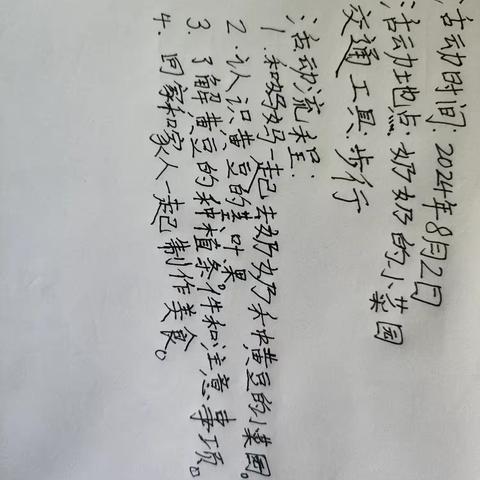 活动时间:2024年8月2日
活动地点:奶奶的小菜园
交通工具:步行
活动流程:
1.和妈妈一起去奶奶种黄豆的小菜园。
2.认识黄豆的茎叶果。
3.了解黄豆的种植条件和注意事项。
4.回家和家人一起制作美食。